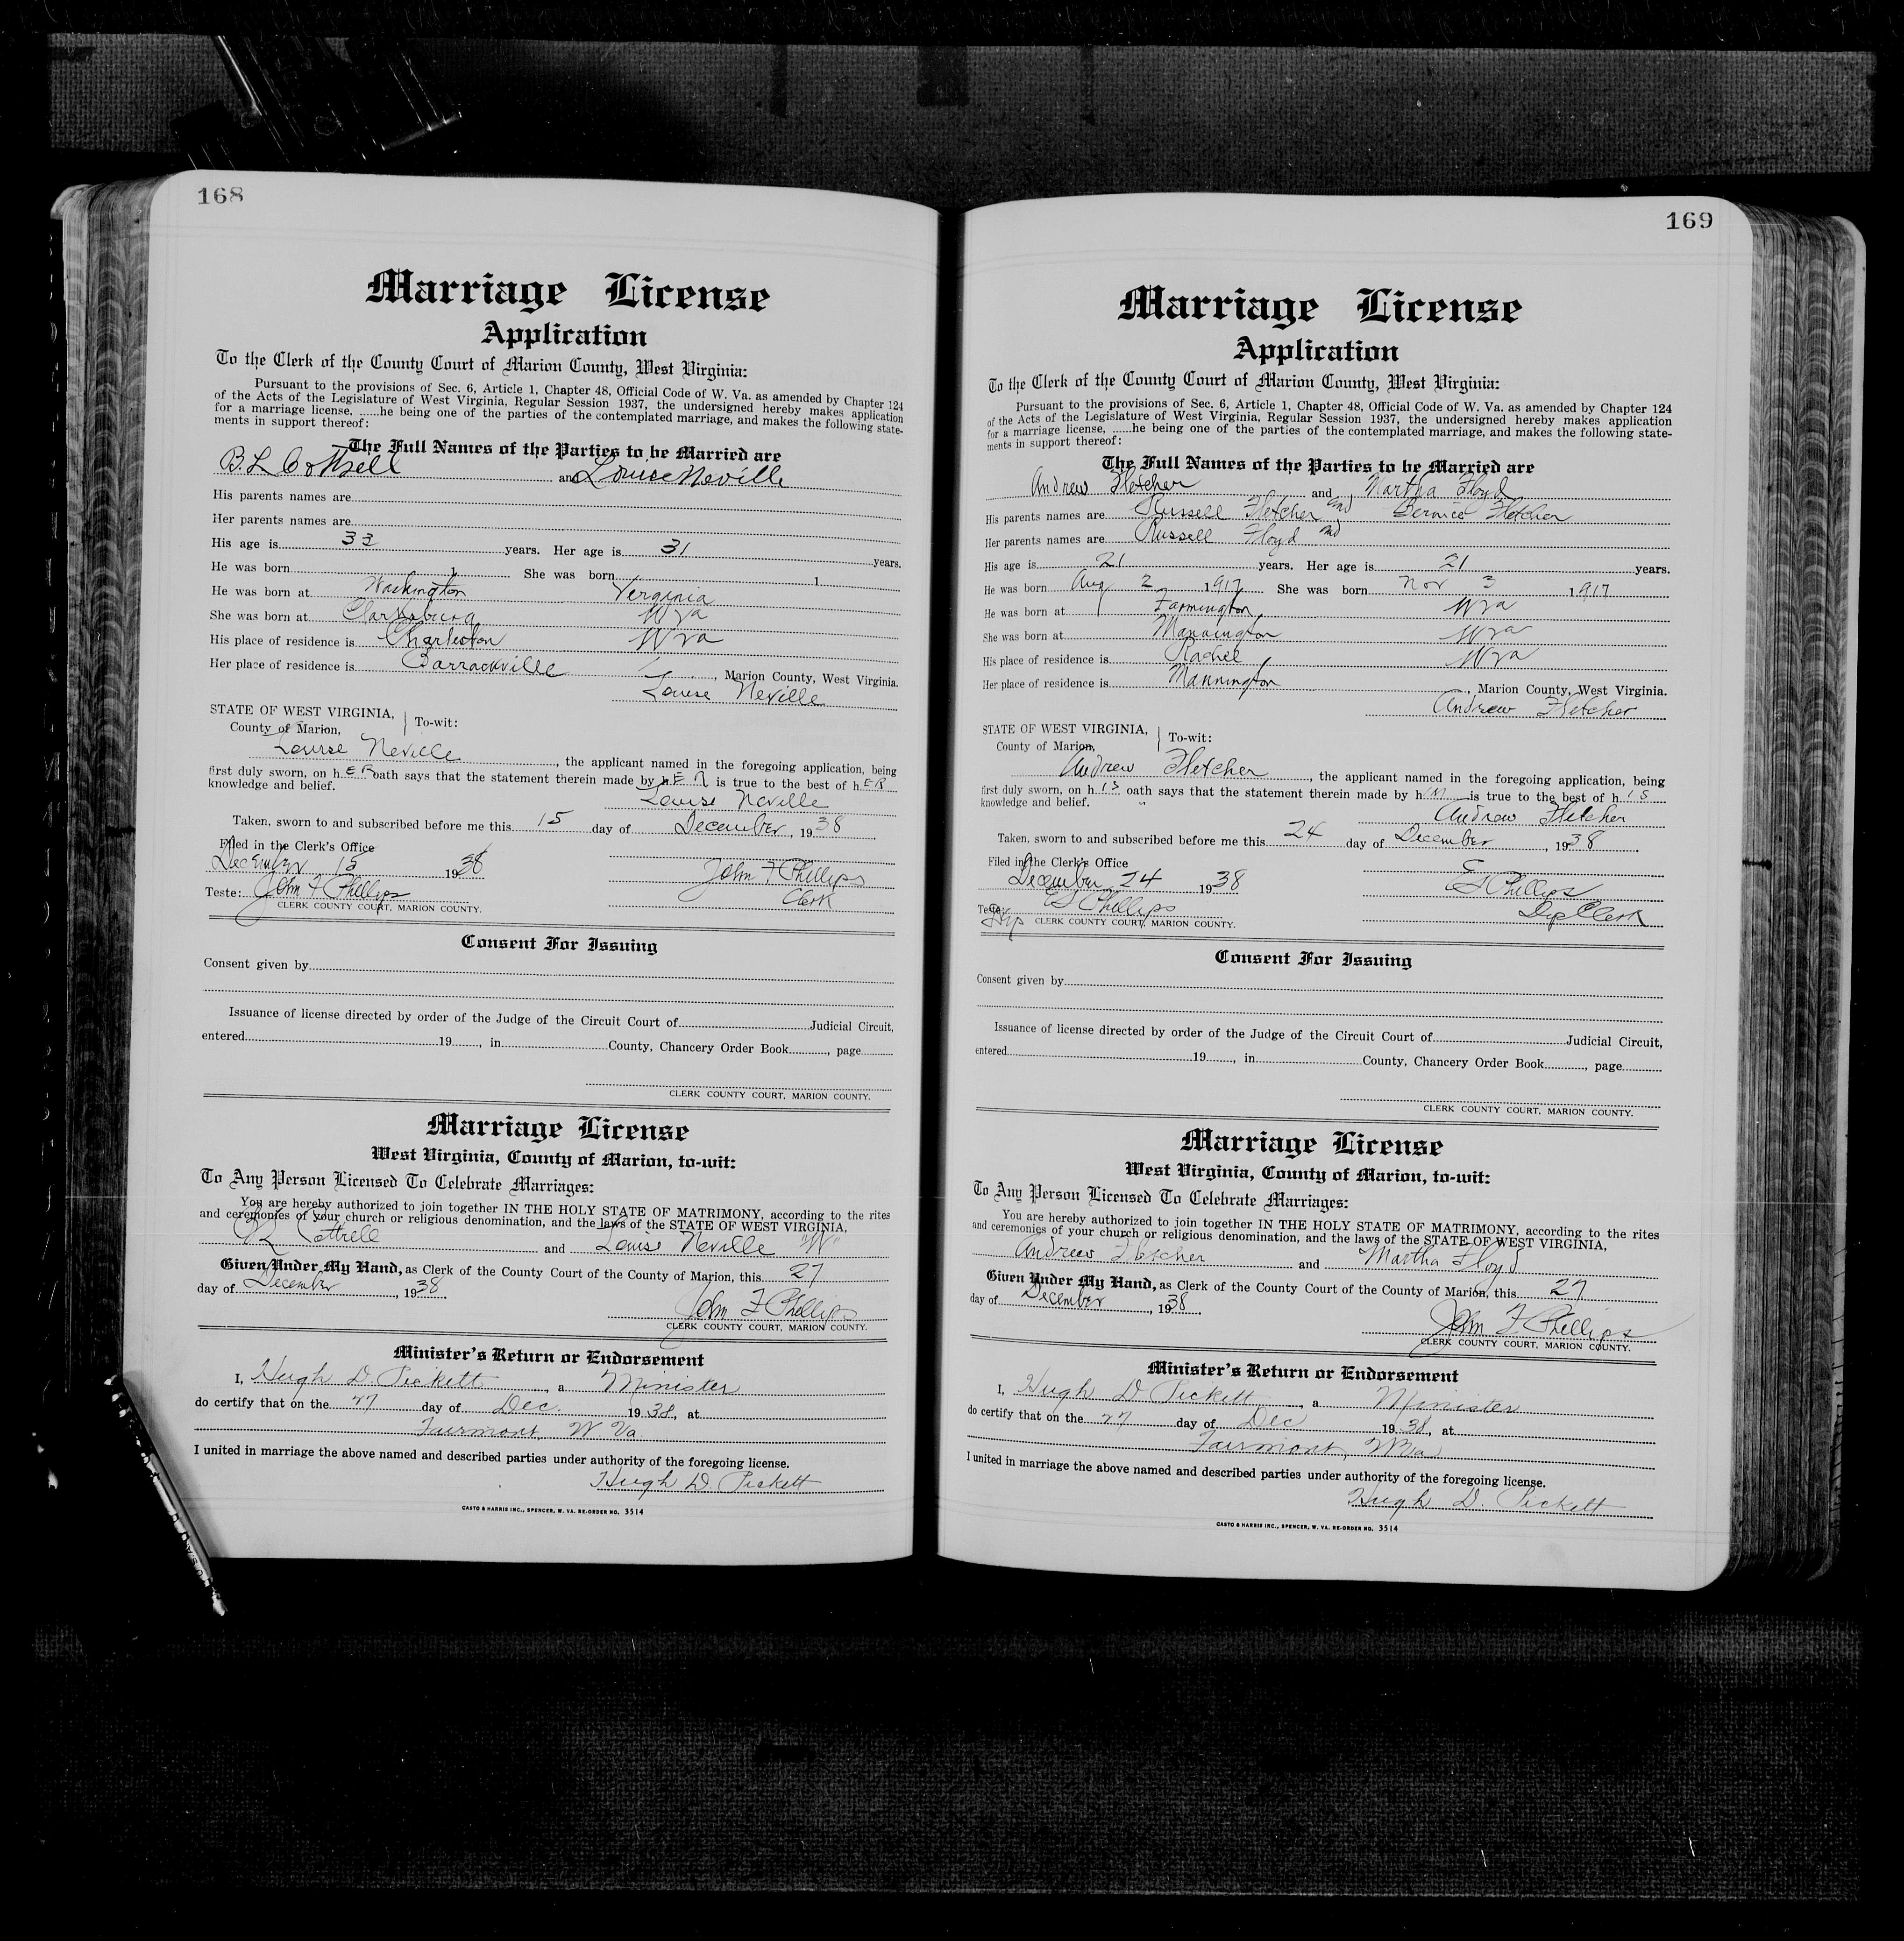 168
Marriage License
Application
To the Clerk of the County Court of Marion County, West Virginia:
Pursuant to the provisions of Sec. 6, Article 1, Chapter 48, Official Code of W. Va. as amended by Chapter 124
of the Acts of the Legislature of West Virginia, Regular Session 1937, the undersigned hereby makes application
for a marriage license, ......he being one of the parties of the contemplated marriage, and makes the following state-
ments in support thereof:
The Full Names of the Parties to be Married are
B.L. Cottrell and Louise Neville
His parents names are
Her parents names are
His age is 33 years. Her age is 31 years.
He was born 1 She was born 1
He was born at Washington Virginia
She was born at Clarksburg W Va
His place of residence is Charleston W Va
Her place of residence is Barrackville, Marion County, West Virginia.
Louise Neville
STATE OF WEST VIRGINIA,
County of Marion, To-wit:
Louise Neville, the applicant named in the foregoing application, being
first duly sworn, on hER oath says that the statement therein made by hER is true to the best of hER
knowledge and belief.
Louise Neville
Taken, sworn to and subscribed before me this 15 day of December, 1938
Filed in the Clerk's Office
December 15 1938
John F Phillips
Clerk
Teste: John F Phillips
CLERK COUNTY COURT, MARION COUNTY.
Consent For Issuing
Consent given by
Issuance of license directed by order of the Judge of the Circuit Court of Judicial Circuit,
entered 19, in County, Chancery Order Book, page
CLERK COUNTY COURT, MARION COUNTY.
Marriage License
West Virginia, County of Marion, to-wit:
To Any Person Licensed To Celebrate Marriages:
You are hereby authorized to join together IN THE HOLY STATE OF MATRIMONY, according to the rites
and ceremonies of your church or religious denomination, and the laws of the STATE OF WEST VIRGINIA,
B L Cottrell and Louise Neville "W"
Given Under My Hand, as Clerk of the County Court of the County of Marion, this 27
day of December, 1938
John F Phillips
CLERK COUNTY COURT, MARION COUNTY.
Minister's Return or Endorsement
I, Hugh D. Pickett, a Minister
do certify that on the 27 day of Dec. 1938, at
Fairmont W. Va
I united in marriage the above named and described parties under authority of the foregoing license.
Hugh D. Pickett
CASTO & HARRIS INC., SPENCER, W. VA. RE-ORDER NO. 3514
169
Marriage License
Application
To the Clerk of the County Court of Marion County, West Virginia:
Pursuant to the provisions of Sec. 6, Article 1, Chapter 48, Official Code of W. Va. as amended by Chapter 124
of the Acts of the Legislature of West Virginia, Regular Session 1937, the undersigned hereby makes application
for a marriage license, ......he being one of the parties of the contemplated marriage, and makes the following state-
ments in support thereof:
The Full Names of the Parties to be Married are
Andrew Fletcher and Martha Floyd
His parents names are Russell Fletcher and Bernice Fletcher
Her parents names are Russell Floyd and
His age is 21 years. Her age is 21 years.
He was born Aug 2 1917 She was born Nov 3 1917
He was born at Farmington, W Va
She was born at Mannington W Va
His place of residence is Rachel W Va
Her place of residence is Mannington, Marion County, West Virginia.
Andrew Fletcher
STATE OF WEST VIRGINIA,
County of Marion, To-wit:
Andrew Fletcher, the applicant named in the foregoing application, being
first duly sworn, on hIS oath says that the statement therein made by hIM is true to the best of hIS
knowledge and belief.
Andrew Fletcher
Taken, sworn to and subscribed before me this 24 day of December, 1938
Filed in the Clerk's Office
December 24 1938
E J Phillips
Dep Clerk
Teste: E J Phillips
Dep CLERK COUNTY COURT, MARION COUNTY.
Consent For Issuing
Consent given by
Issuance of license directed by order of the Judge of the Circuit Court of Judicial Circuit,
entered 19, in County, Chancery Order Book, page
CLERK COUNTY COURT, MARION COUNTY.
Marriage License
West Virginia, County of Marion, to-wit:
To Any Person Licensed To Celebrate Marriages:
You are hereby authorized to join together IN THE HOLY STATE OF MATRIMONY, according to the rites
and ceremonies of your church or religious denomination, and the laws of the STATE OF WEST VIRGINIA,
Andrew Fletcher and Martha Floyd
Given Under My Hand, as Clerk of the County Court of the County of Marion, this 27
day of December, 1938
John F Phillips
CLERK COUNTY COURT, MARION COUNTY.
Minister's Return or Endorsement
I, Hugh D. Pickett, a Minister
do certify that on the 27 day of Dec 1938, at
Fairmont, W Va
I united in marriage the above named and described parties under authority of the foregoing license.
Hugh D. Pickett
CASTO & HARRIS INC., SPENCER, W. VA. RE-ORDER NO. 3514